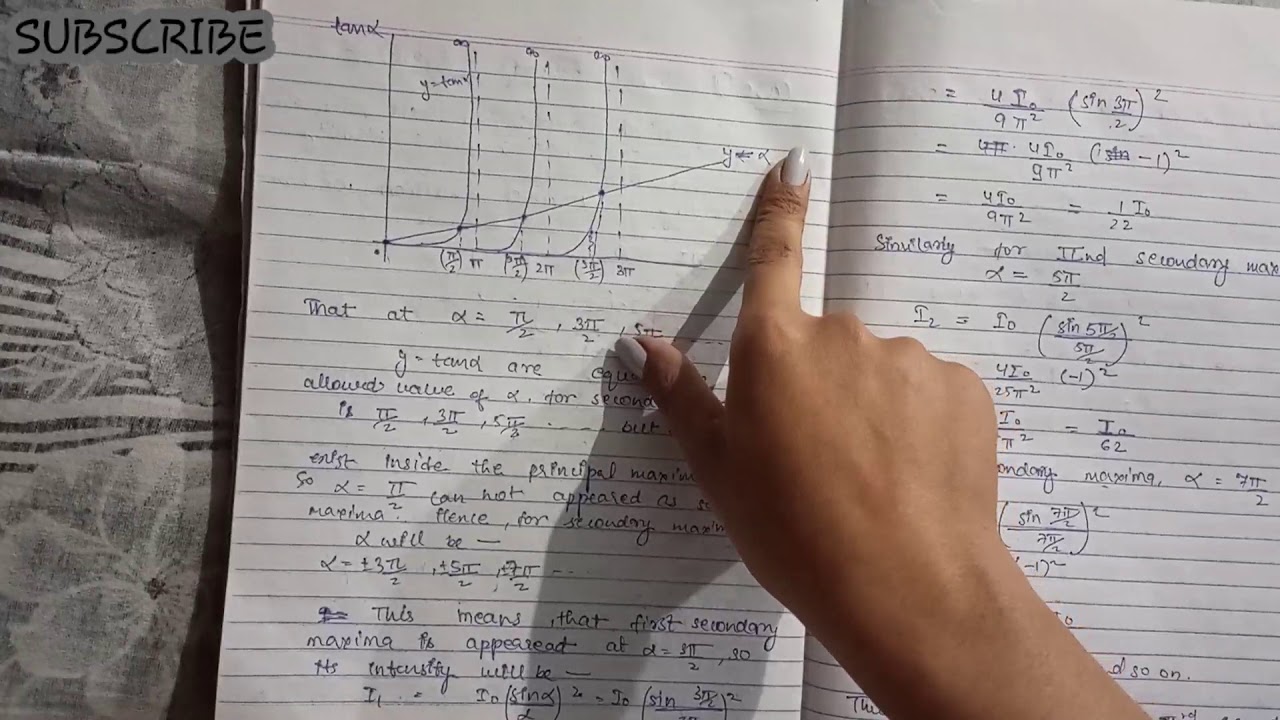 SUBSCRIBE
tanα
∞ ∞ ∞
y=tanα
y = α
(π/2) π (3π/2) 2π (5π/2) 3π
That at α = π/2 , 3π/2 , 5π
y = tanα are
allowed value of α. for
is π/2 , 3π/2 , 5π/2 ..... but
exist inside the principal maxima
So α = π/2 can not appeared as
maxima. Hence, for secondary maxim
α will be —
α = ±3π/2 , ±5π/2 , ±7π/2 ...
This means, that first secondary
maxima is appearead at α = 3π/2 , so
its intensity will be —
I₁ = I₀ (sinα/α)² = I₀ (sin 3π/2
= 4I₀/9π² (sin 3π/2)²
= 4I₀/9π² (-1)²
= 4I₀/9π² = 1/22 I₀
Similarly for IInd secondary max
α = 5π/2
I₂ = I₀ (sin 5π/2 / 5π/2)²
4I₀/25π² (-1)²
I₀/π² = I₀/62
ondary maxima, α = 7π/2
(sin 7π/2 / 7π/2)²
(-1)²
d so on.